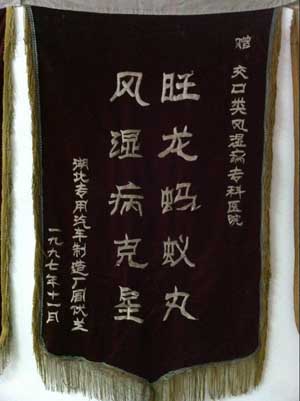 赠 交口类风湿病专科医院
旺龙蚂蚁丸
风湿病克星
湖北专用汽车制造厂周伏生
一九九七年十一月